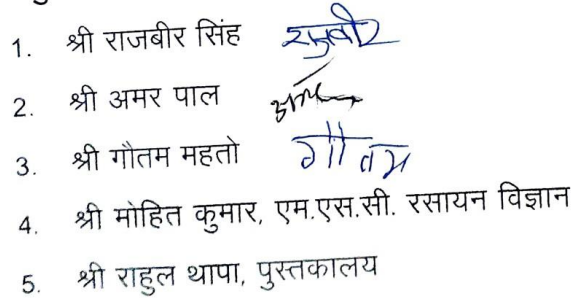 1. श्री राजबीर सिंह राजबीर
2. श्री अमर पाल अमर
3. श्री गौतम महतो गौतम
4. श्री मोहित कुमार, एम.एस.सी. रसायन विज्ञान
5. श्री राहुल थापा, पुस्तकालय